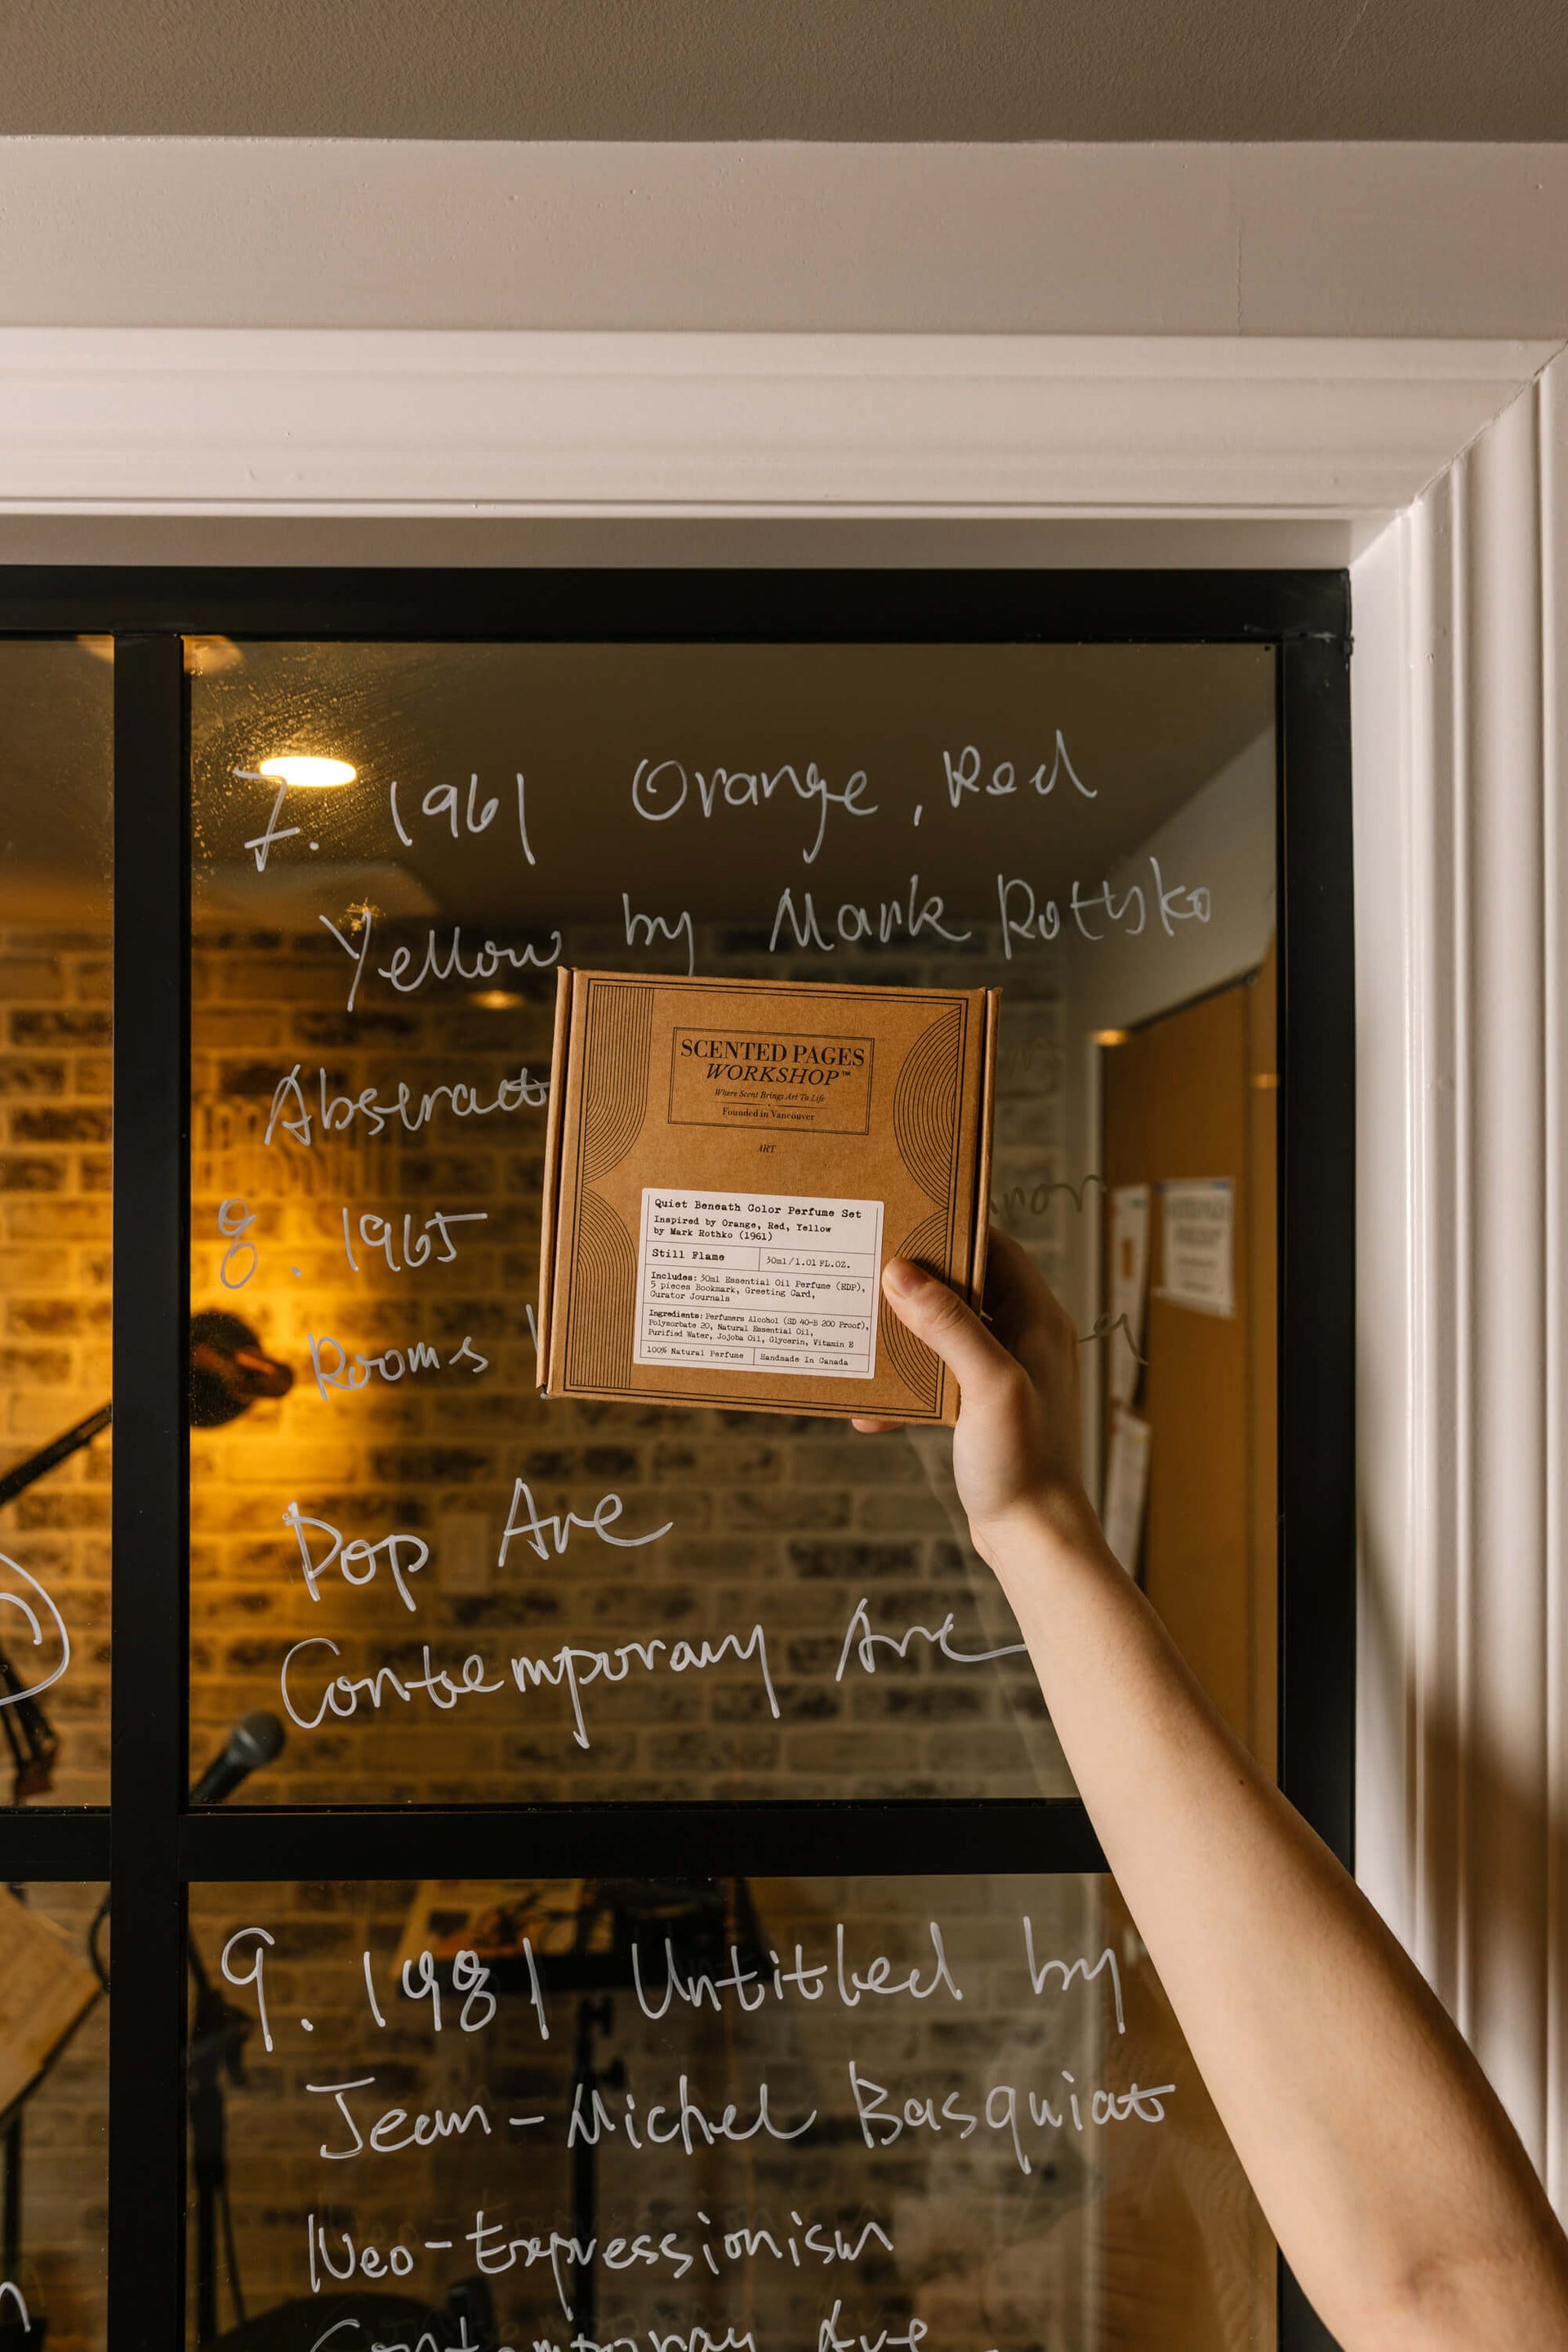 7. 1961 Orange, Red
Yellow by Mark Rothko
Abstract
8. 1965
Rooms
Pop Art
Contemporary Art
SCENTED PAGES
WORKSHOP™
Where Scent Brings Art To Life
Founded in Vancouver
ART
Quiet Beneath Color Perfume Set
Inspired by Orange, Red, Yellow
by Mark Rothko (1961)
Still Flame
30ml/1.01 FL.OZ.
Includes: 30ml Essential Oil Perfume (EDP),
5 pieces Bookmark, Greeting Card,
Curator Journals
Ingredients: Perfumers Alcohol (SD 40-B 200 Proof),
Polysorbate 20, Natural Essential Oil,
Purified Water, Jojoba Oil, Glycerin, Vitamin E
100% Natural Perfume
Handmade In Canada
9. 1981 Untitled by
Jean-Michel Basquiat
Neo-Expressionism
Contemporary Art